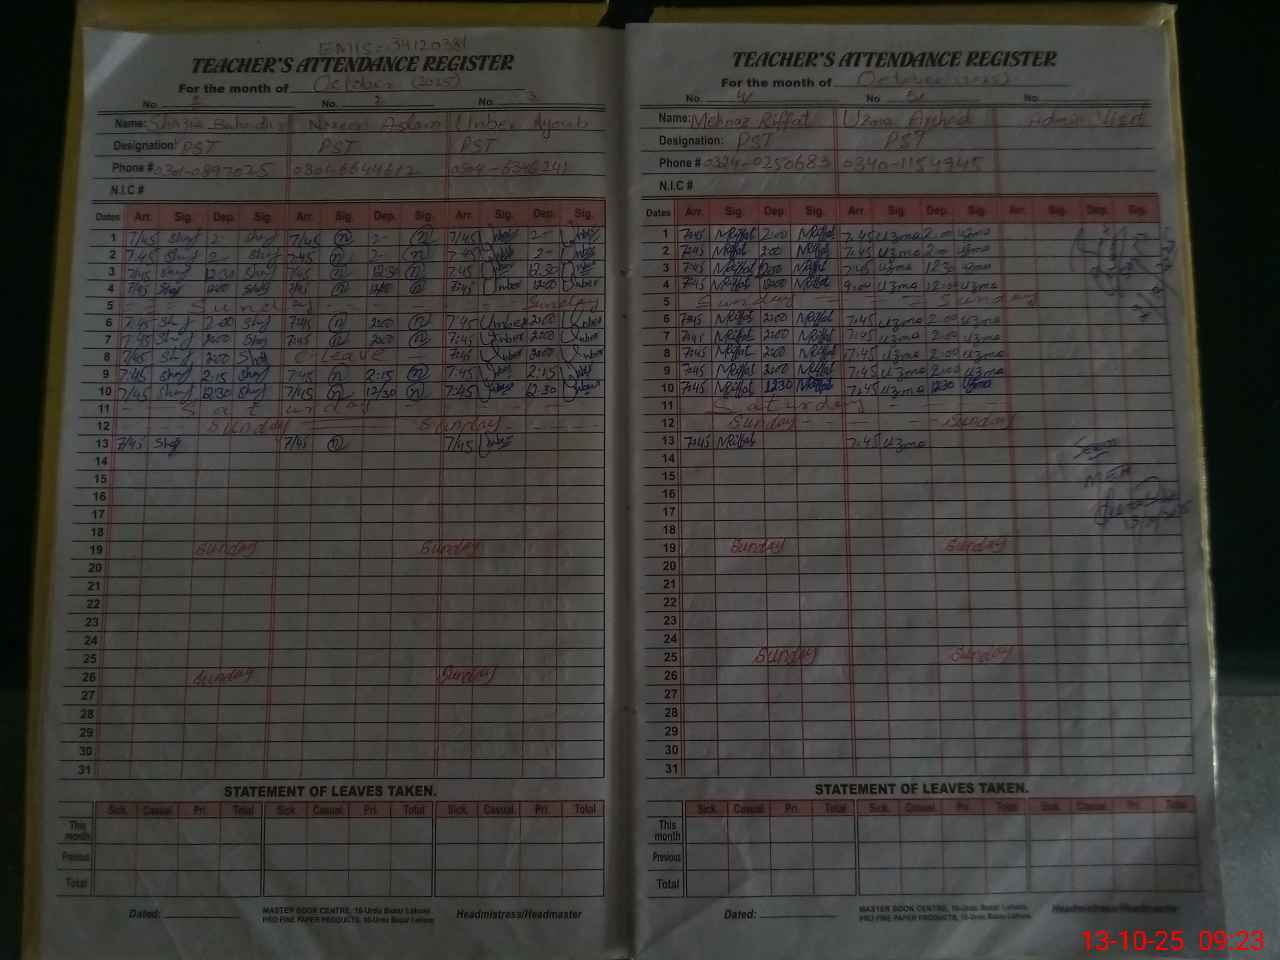 EMIS:- 34120381
TEACHER'S ATTENDANCE REGISTER
For the month of October (2025)
No. 1 No. 2 No. 3
Name: Shazia Nazeen Aslam Umber Ayoub
Designation: PST PST PST
Phone # 0301-0897025
N.I.C #
Dates Arr. Sig. Dep. Sig. Arr. Sig. Dep. Sig. Arr. Sig. Dep. Sig.
1 7/45 Shaz 2- Shaz 7/45 n 2- n 7/45 Umber 2- Umber
2 7:45 Shaz 2- Shaz 7:45 n 2- n 7:45 Umber 2- Umber
3 7/45 Shaz 12:30 Shaz 7/45 n 12:30 n 7:45 Umber 12:30 Umber
4 7/45 Shaz 12:00 Shaz 7/45 n 12:00 n 7:45 Umber 12:00 Umber
5 Sunday Sunday
6 7:45 Shaz 2:00 Shaz 7:45 n 2:00 n 7:45 Umber 2:00 Umber
7 7:45 Shaz 2:00 Shaz 7:45 n 2:00 n 7:45 Umber 2:00 Umber
8 7/45 Shaz 2:00 Shaz C-Leave 7:45 Umber 2:00 Umber
9 7:45 Shaz 2:15 Shaz 7:45 n 2:15 n 7:45 Umber 2:15 Umber
10 7/45 Shaz 12:30 Shaz 7/45 n 12/30 n 7:45 Umber 12:30 Umber
11 Saturday
12 Sunday Sunday
13 7/45 Shaz 7/45 n 7/45 Umber
14
15
16
17
18
19 Sunday Sunday
20
21
22
23
24
25
26 Sunday Sunday
27
28
29
30
31
STATEMENT OF LEAVES TAKEN.
Sick. Casual. Pri. Total Sick. Casual. Pri. Total Sick. Casual. Pri. Total
This month
Previous
Total
Dated:
MASTER BOOK CENTRE, 10-Urdu Bazar Lahore.
PRO FINE PAPER PRODUCTS, 10-Urdu Bazar Lahore
Headmistress/Headmaster
TEACHER'S ATTENDANCE REGISTER
For the month of October (2025)
No. 4 No. 5 No.
Name: Mehnaz Riffat Uzma Admin Visit
Designation: PST PST
Phone # 0324-0250683 0340-1154945
N.I.C #
Dates Arr. Sig. Dep. Sig. Arr. Sig. Dep. Sig. Arr. Sig. Dep. Sig.
1 7:45 MRiffat 2:00 MRiffat 7:45 Uzma 2:00 Uzma
2 7:45 MRiffat 2:00 MRiffat 7:45 Uzma 2:00 Uzma
3 7:45 MRiffat MRiffat 7:45 Uzma 12:30 Uzma
4 7:45 MRiffat 12:00 MRiffat Uzma 12:00 Uzma
5 Sunday Sunday
6 7:45 MRiffat 2:00 MRiffat 7:45 Uzma 2:00 Uzma
7 7:45 MRiffat 2:00 MRiffat 7:45 Uzma 2:00 Uzma
8 7:45 MRiffat 2:00 MRiffat 7:45 Uzma 2:00 Uzma
9 7:45 MRiffat 2:00 MRiffat 7:45 Uzma 2:00 Uzma
10 7:45 MRiffat 12:30 MRiffat 7:45 Uzma 12:30 Uzma
11 Saturday
12 Sunday Sunday
13 7:45 MRiffat 7:45 Uzma
14 Seen
15
16
17
18
19 Sunday Sunday
20
21
22
23
24
25 Sunday Sunday
26
27
28
29
30
31
STATEMENT OF LEAVES TAKEN.
Sick. Casual. Pri. Total Sick. Casual. Pri. Total Sick. Casual. Pri. Total
This month
Previous
Total
Dated:
MASTER BOOK CENTRE, 10-Urdu Bazar Lahore.
PRO FINE PAPER PRODUCTS, 10-Urdu Bazar Lahore
Headmistress/Headmaster
13-10-25 09:23